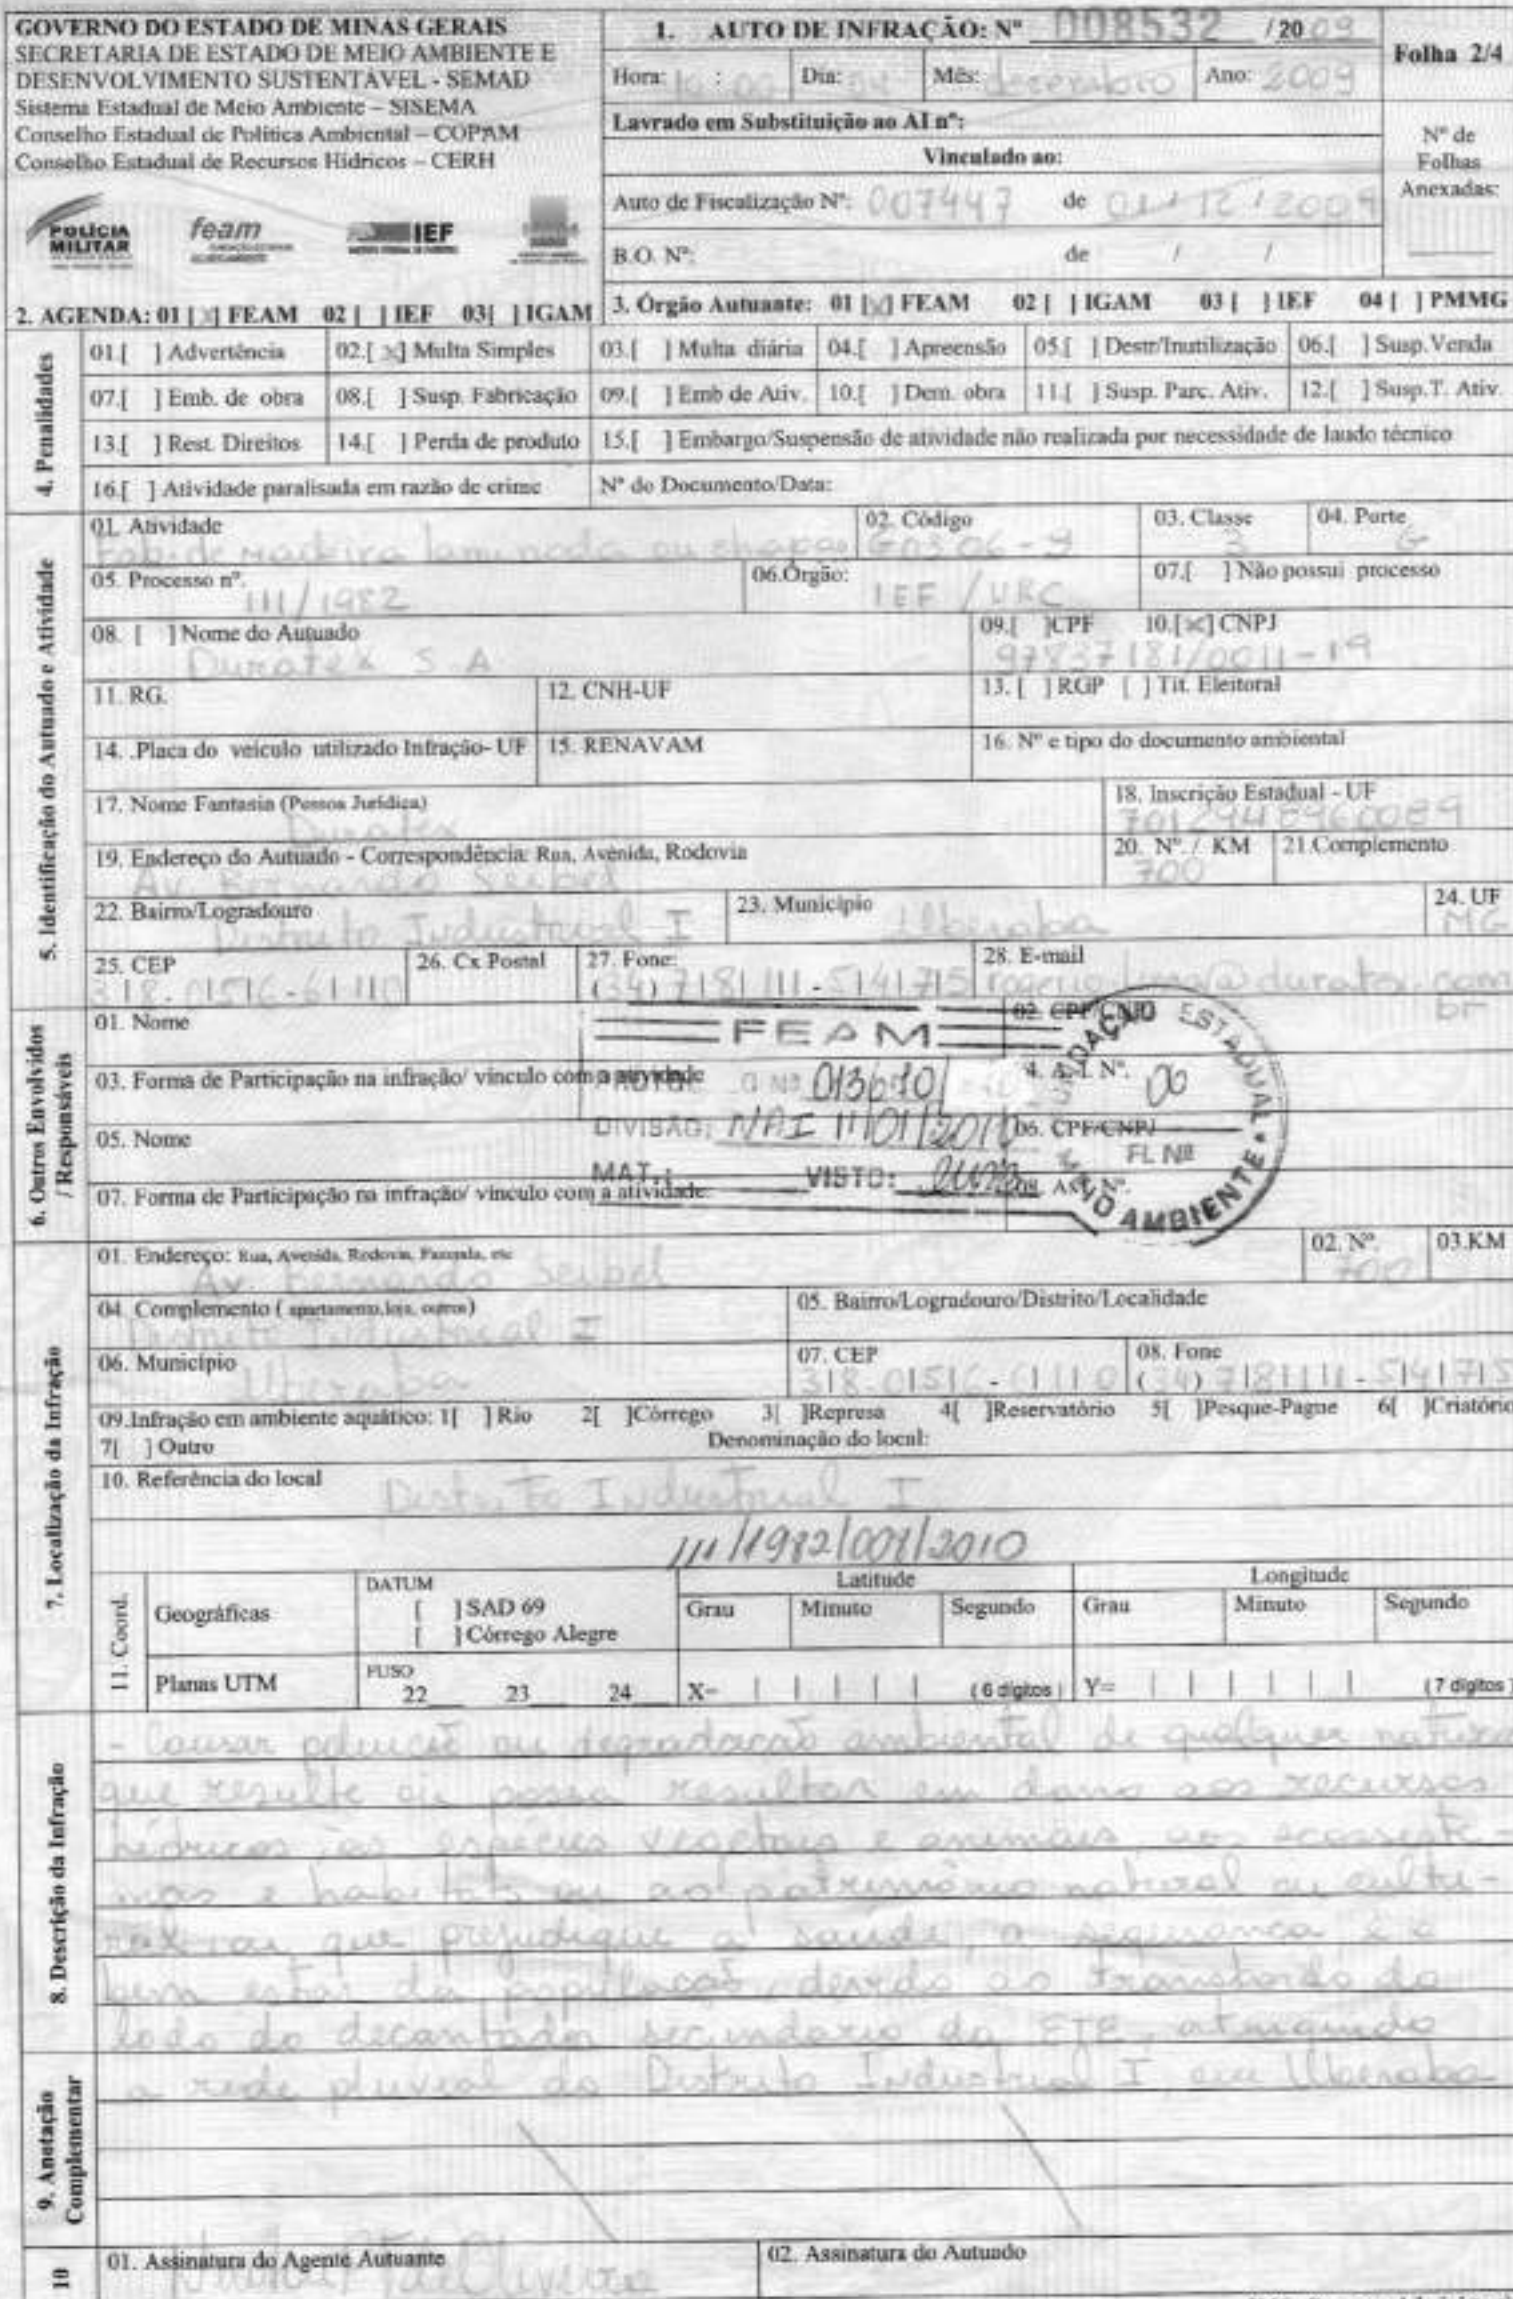 GOVERNO DO ESTADO DE MINAS GERAIS
SECRETARIA DE ESTADO DE MEIO AMBIENTE E
DESENVOLVIMENTO SUSTENTÁVEL - SEMAD
Sistema Estadual de Meio Ambiente – SISEMA
Conselho Estadual de Política Ambiental – COPAM
Conselho Estadual de Recursos Hídricos – CERH
POLÍCIA MILITAR feam IEF
1. AUTO DE INFRAÇÃO: Nº 008532 / 20 09
Folha 2/4
Hora: : 00 Dia: 04 Mês: dezembro Ano: 2009
Lavrado em Substituição ao AI nº:
Vinculado ao:
Nº de Folhas Anexadas:
Auto de Fiscalização Nº: 007447 de 01 / 12 / 2009
B.O. Nº: de / /
2. AGENDA: 01 [X] FEAM 02 [ ] IEF 03[ ] IGAM
3. Órgão Autuante: 01 [X] FEAM 02 [ ] IGAM 03 [ ] IEF 04 [ ] PMMG
4. Penalidades
01.[ ] Advertência 02.[X] Multa Simples 03.[ ] Multa diária 04.[ ] Apreensão 05.[ ] Destr/Inutilização 06.[ ] Susp.Venda
07.[ ] Emb. de obra 08.[ ] Susp. Fabricação 09.[ ] Emb de Ativ. 10.[ ] Dem. obra 11.[ ] Susp. Parc. Ativ. 12.[ ] Susp.T. Ativ.
13.[ ] Rest. Direitos 14.[ ] Perda de produto 15.[ ] Embargo/Suspensão de atividade não realizada por necessidade de laudo técnico
16.[ ] Atividade paralisada em razão de crime Nº do Documento/Data:
5. Identificação do Autuado e Atividade
01. Atividade 02. Código 03. Classe 04. Porte
Fab. de madeira laminada ou chapas G0306-9 3 G
05. Processo nº. 06.Órgão: 07.[ ] Não possui processo
111/1982 IEF / URC
08. [ ] Nome do Autuado 09.[ ]CPF 10.[X] CNPJ
Duratex S.A 97837181/0011-19
11. RG. 12. CNH-UF 13. [ ] RGP [ ] Tit. Eleitoral
14. .Placa do veículo utilizado Infração- UF 15. RENAVAM 16. Nº e tipo do documento ambiental
17. Nome Fantasia (Pessoa Jurídica) 18. Inscrição Estadual - UF
Duratex
19. Endereço do Autuado - Correspondência: Rua, Avenida, Rodovia 20. Nº. / KM 21.Complemento
Av. Bernardo Seibel 700
22. Bairro/Logradouro 23. Município 24. UF
Distrito Industrial I Uberaba MG
25. CEP 26. Cx Postal 27. Fone: 28. E-mail
(34) @duratex.com
br
6. Outros Envolvidos / Responsáveis
01. Nome 02. CPF/CNPJ
FEAM
03. Forma de Participação na infração/ vínculo com a atividade 4. A.I. Nº.
Nº 013670
06
DIVISÃO: NAI 11/01/2010
05. Nome 06. CPF/CNPJ
FL Nº
MAT.: VISTO:
FUNDAÇÃO ESTADUAL MEIO AMBIENTE
07. Forma de Participação na infração/ vínculo com a atividade:
7. Localização da Infração
01. Endereço: Rua, Avenida, Rodovia, Fazenda, etc 02. Nº. 03.KM
Av. Bernardo Seibel 700
04. Complemento ( apartamento, loja, outros) 05. Bairro/Logradouro/Distrito/Localidade
Distrito Industrial I
06. Município 07. CEP 08. Fone
Uberaba (34)
09.Infração em ambiente aquático: 1[ ] Rio 2[ ]Córrego 3[ ]Represa 4[ ]Reservatório 5[ ]Pesque-Pague 6[ ]Criatório
7[ ] Outro Denominação do local:
10. Referência do local
Distrito Industrial I
111/1982/007/2010
11. Coord. Geográficas DATUM [ ] SAD 69 [ ] Córrego Alegre
Latitude Longitude
Grau Minuto Segundo Grau Minuto Segundo
Planas UTM FUSO 22 23 24 X= (6 dígitos) Y= (7 dígitos)
8. Descrição da Infração
- Causar poluição ou degradação ambiental de qualquer natureza
que resulte ou possa resultar em dano aos recursos
hídricos, às espécies vegetais e animais, aos ecossiste-
mas e habitats ou ao patrimônio natural ou cultu-
ral, ou que prejudique a saúde, a segurança e o
bem estar da população, devido ao transbordo do
lodo do decantador secundário da ETE, atingindo
a rede pluvial do Distrito Industrial I, em Uberaba
9. Anotação Complementar
10
01. Assinatura do Agente Autuante 02. Assinatura do Autuado